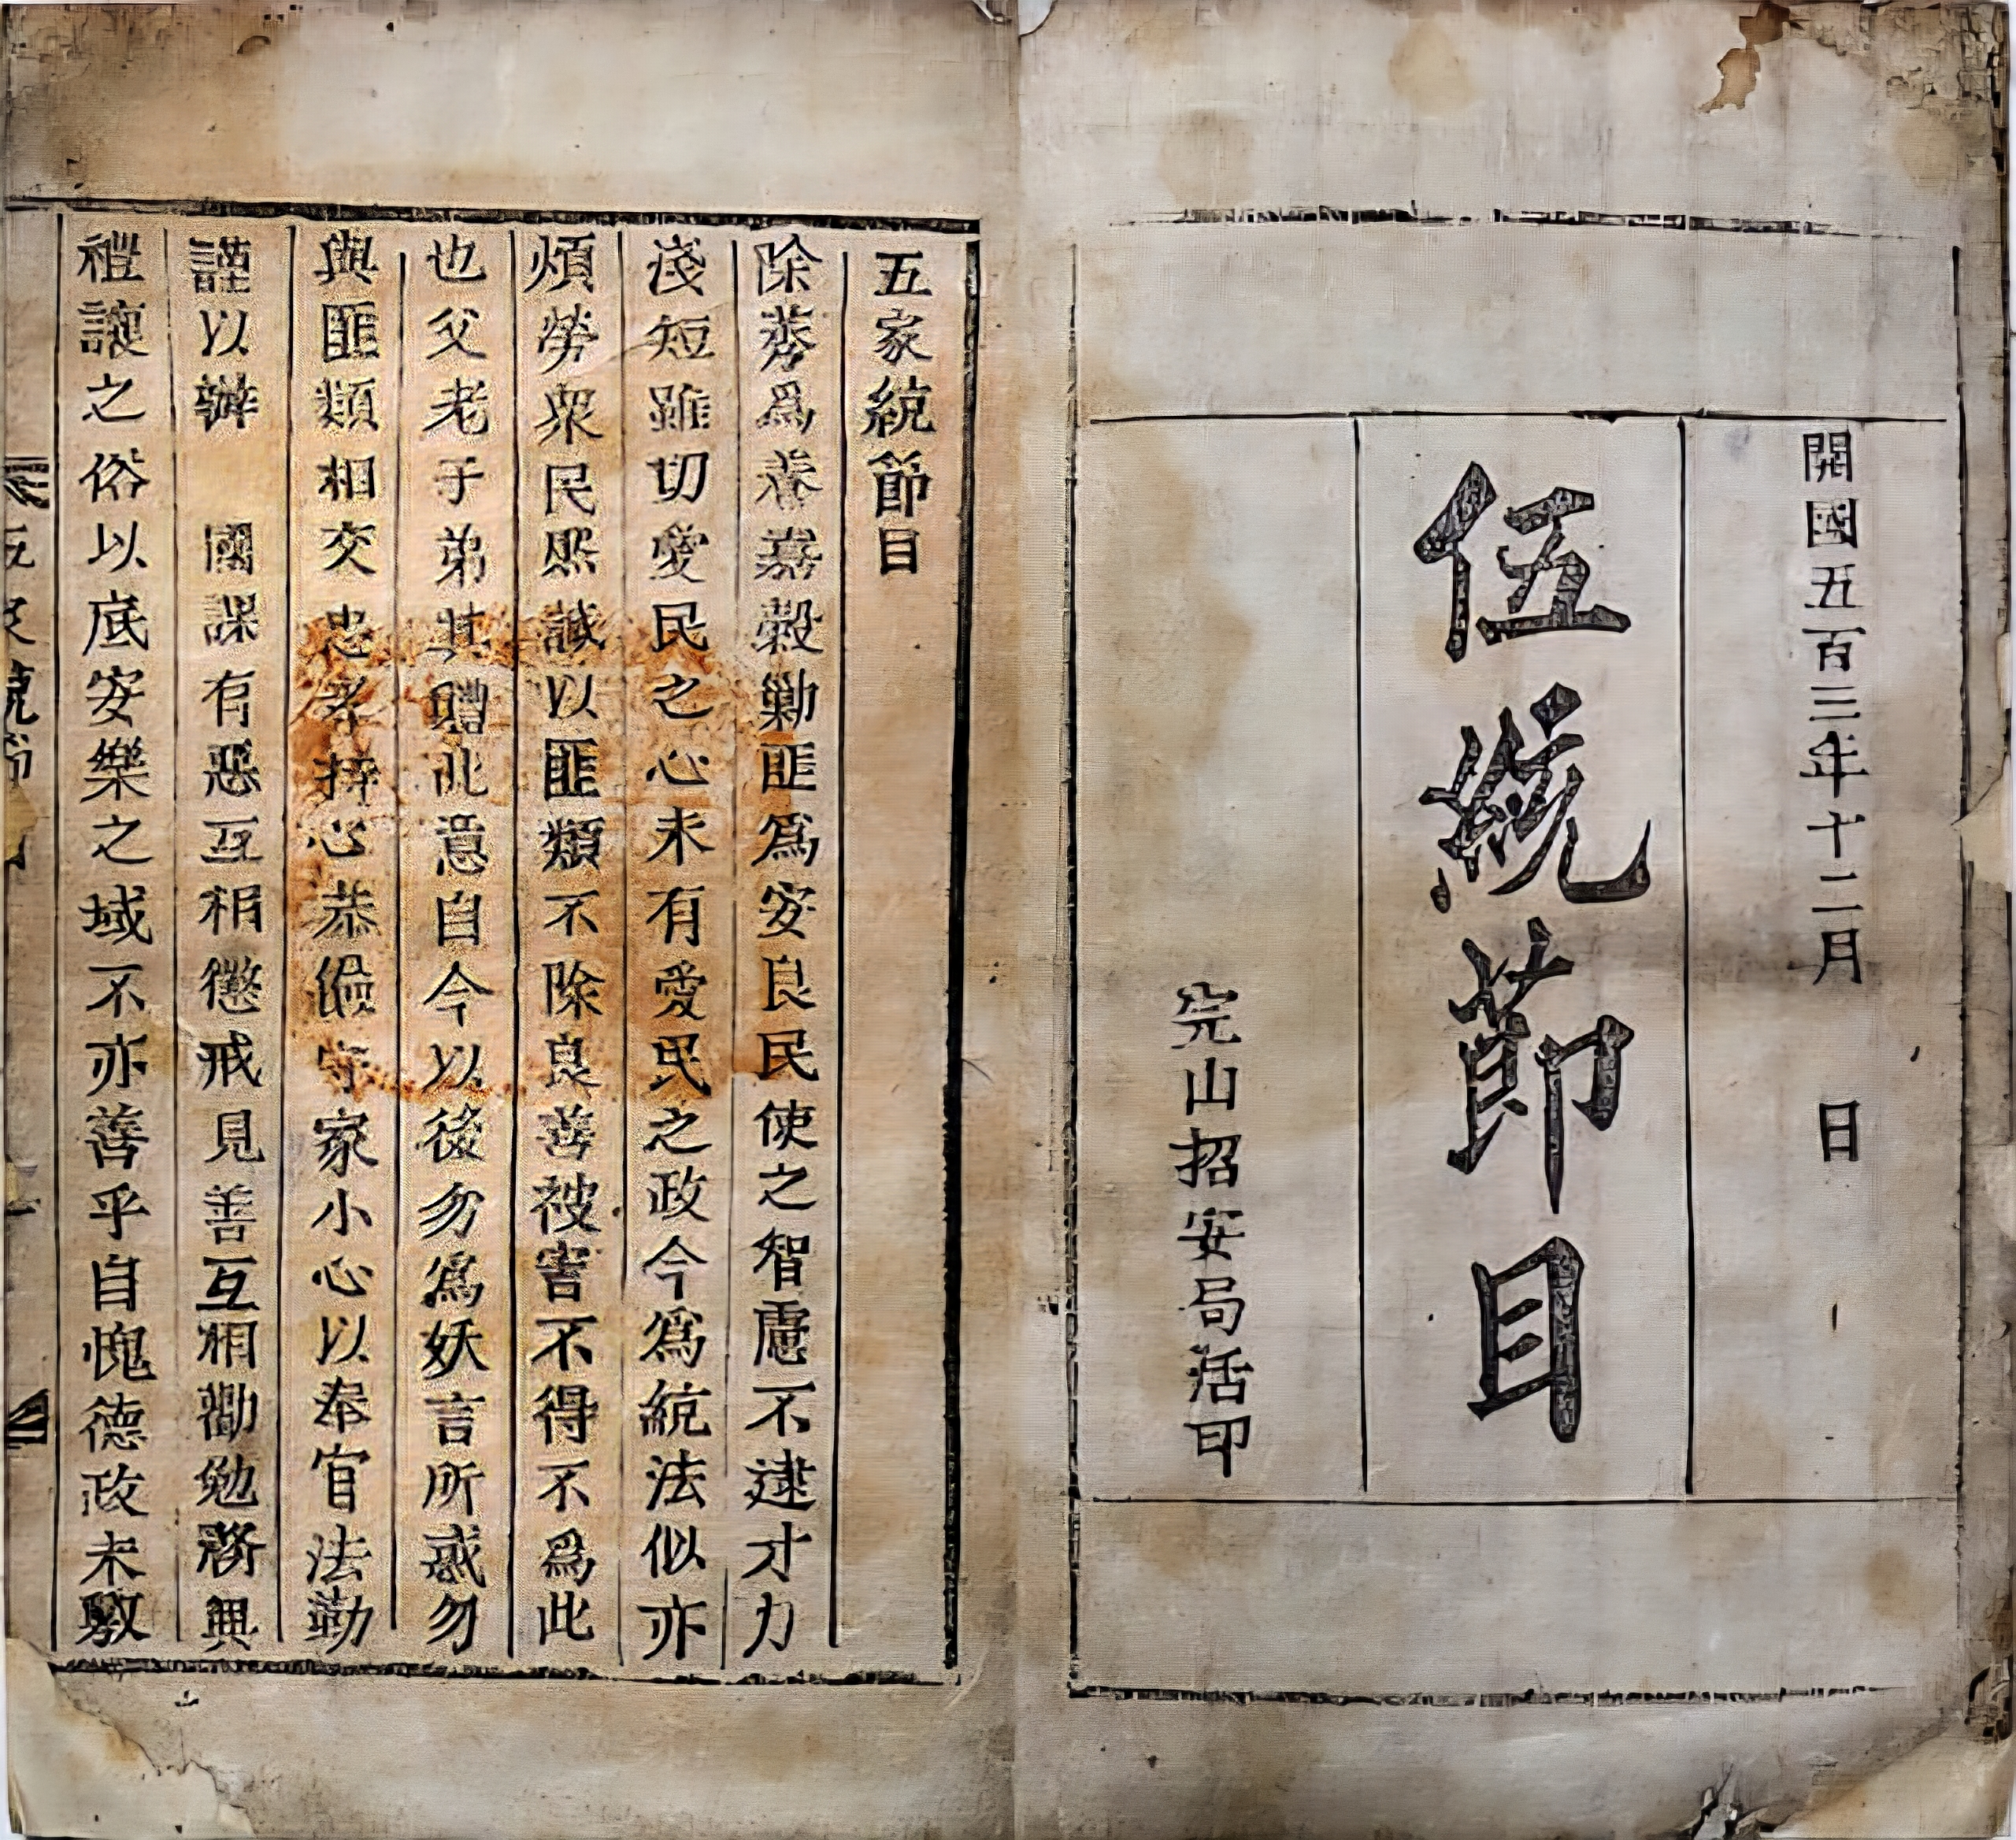 開國五百三年十二月 日
伍統節目
完山招安局活印
五家統節目
除莠爲養嘉穀勦匪爲安良民使之智慮不逮才力
淺短雖切愛民之心未有愛民之政今爲統法似亦
煩勞衆民然誠以匪類不除良善被害不得不爲此
也父老子弟其體此意自今以後勿爲妖言所惑勿
與匪類相交忠孝持心恭儉守家小心以奉官法勤
謹以辦 國課有惡互相懲戒見善互相勸勉務興
禮讓之俗以底安樂之域不亦善乎自愧德政未敷